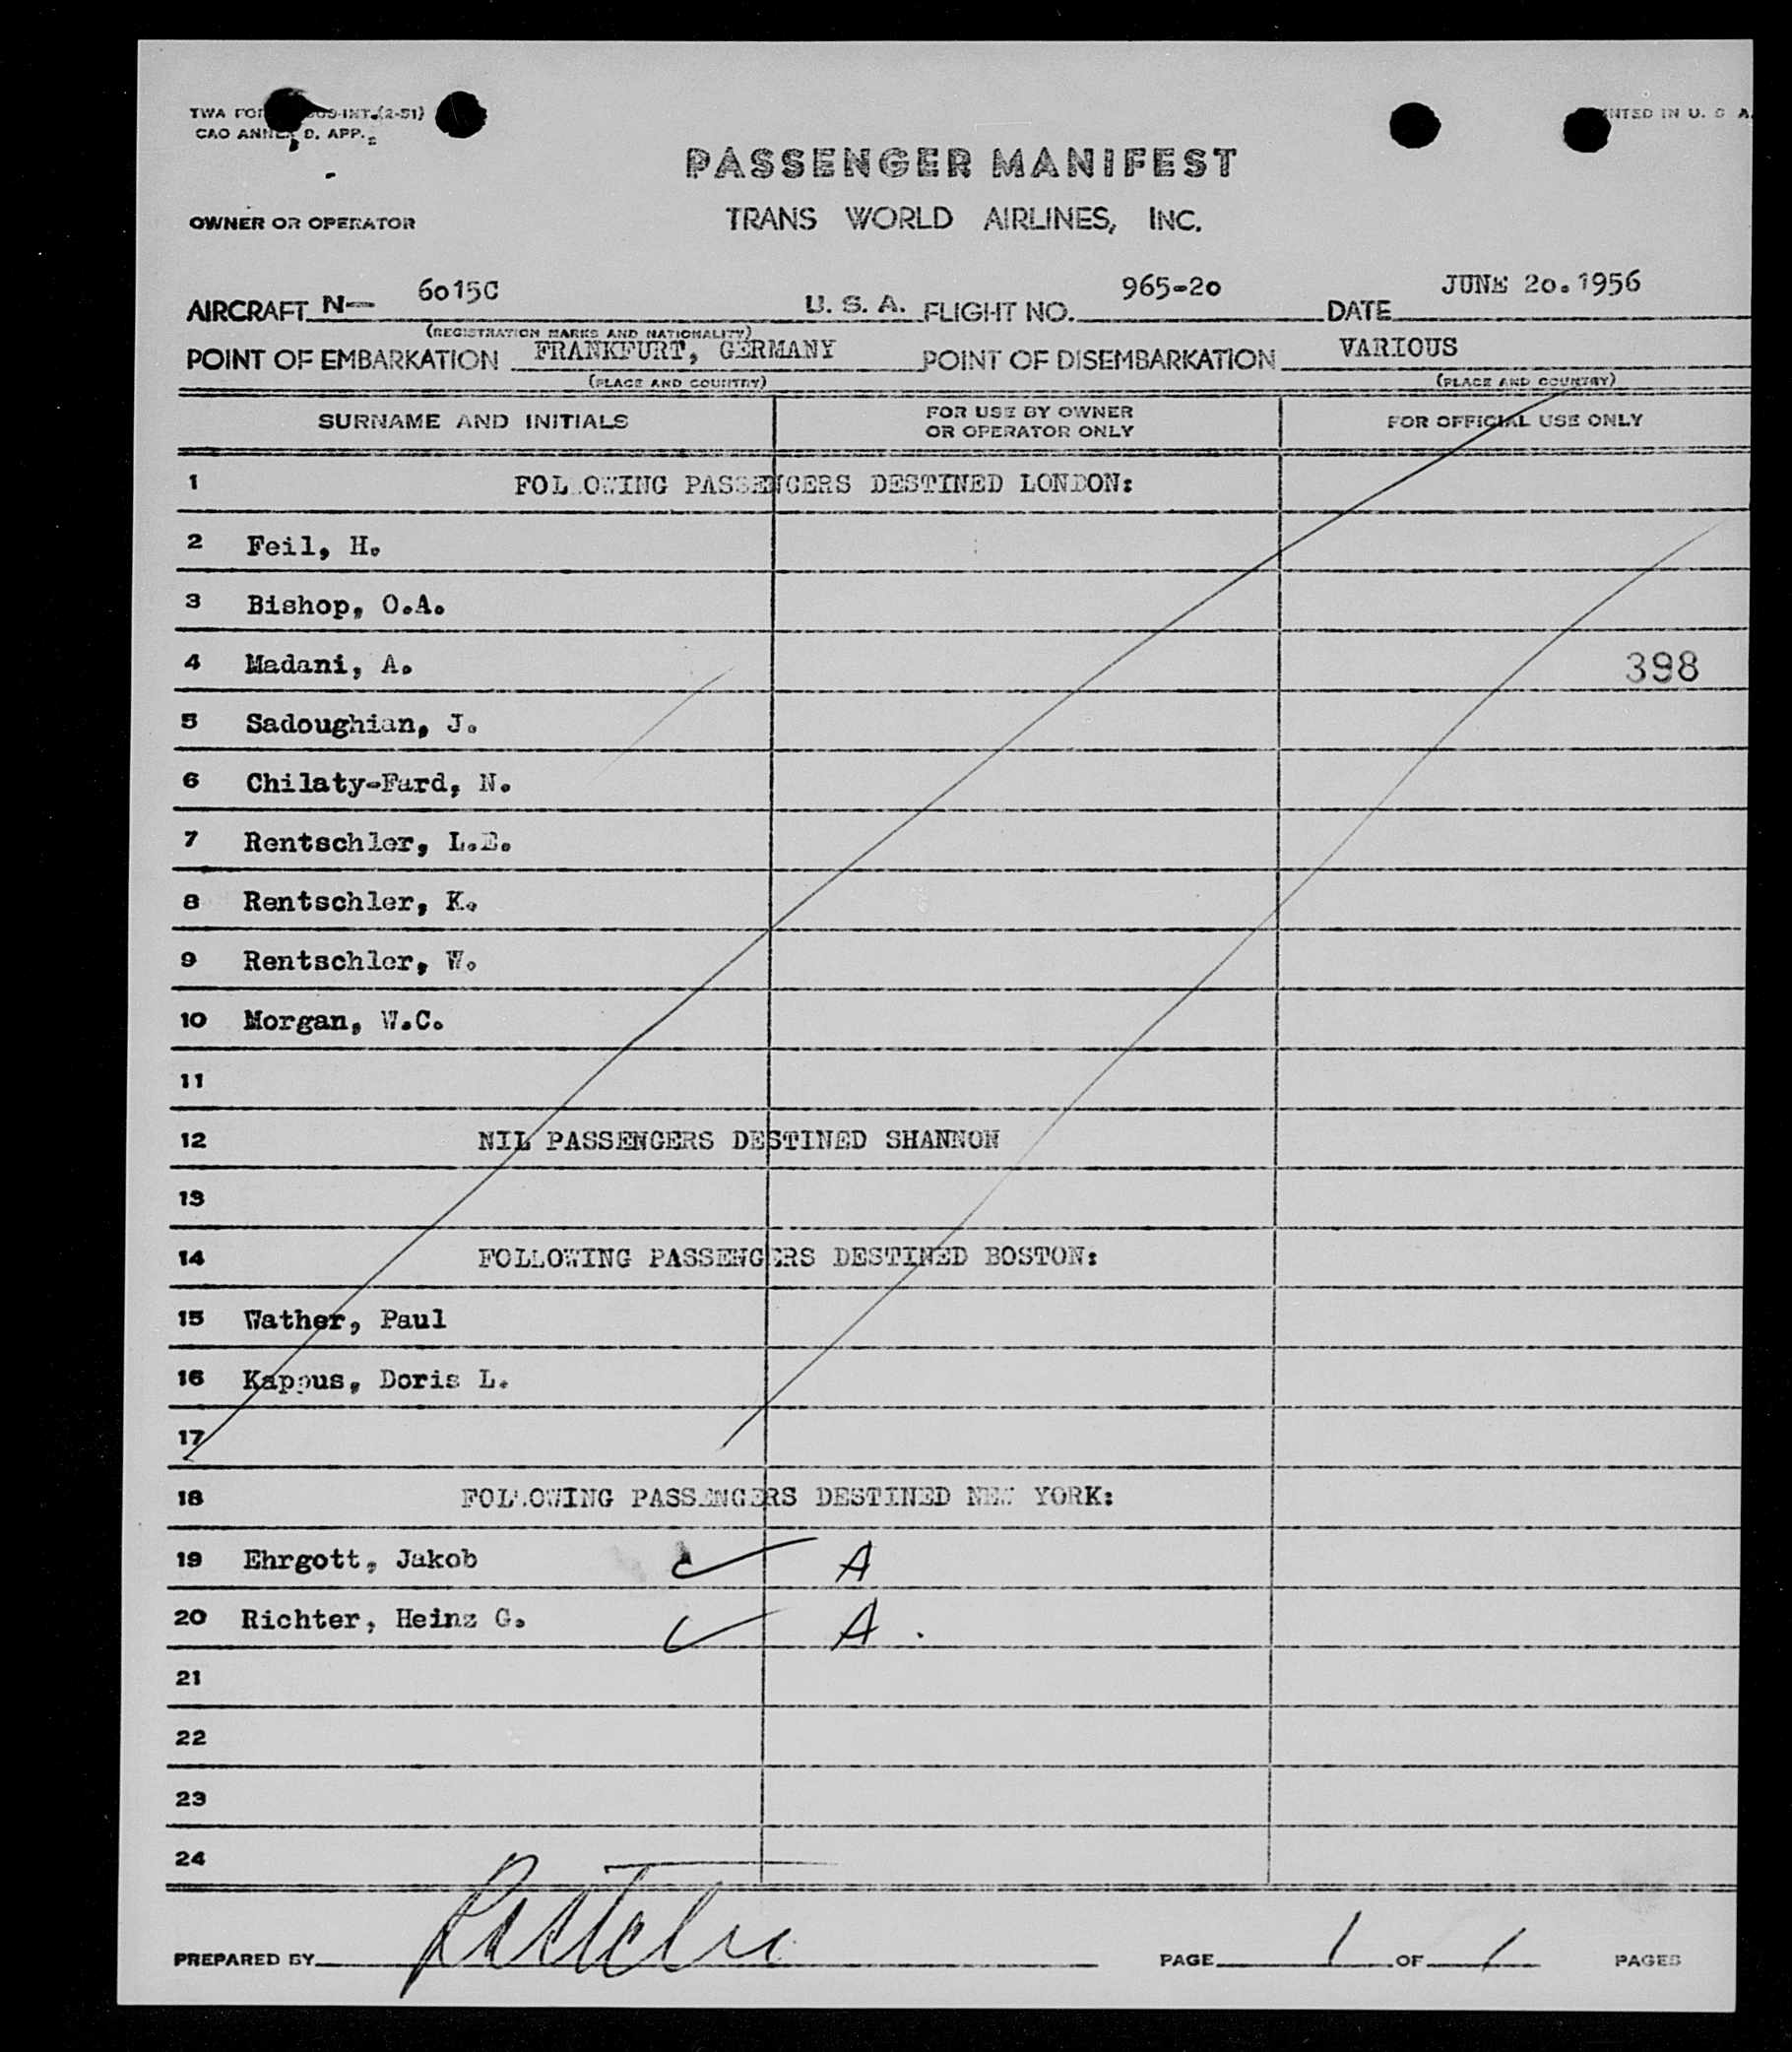 TWA
CAO ANNEX D. APP.
INT.(2-51)
PRINTED IN U. S. A.
PASSENGER MANIFEST
OWNER OR OPERATOR
TRANS WORLD AIRLINES, INC.
AIRCRAFT N- 6015C U. S. A. FLIGHT NO. 965-20 DATE JUNE 20.1956
(REGISTRATION MARKS AND NATIONALITY)
POINT OF EMBARKATION FRANKFURT, GERMANY POINT OF DISEMBARKATION VARIOUS
(PLACE AND COUNTRY) (PLACE AND COUNTRY)
SURNAME AND INITIALS FOR USE BY OWNER OR OPERATOR ONLY FOR OFFICIAL USE ONLY
1 FOLLOWING PASSENGERS DESTINED LONDON:
2 Feil, H.
3 Bishop, O.A.
4 Madani, A. 398
5 Sadoughian, J.
6 Chilaty-Fard, N.
7 Rentschler, L.E.
8 Rentschler, K.
9 Rentschler, W.
10 Morgan, W.C.
11
12 NIL PASSENGERS DESTINED SHANNON
13
14 FOLLOWING PASSENGERS DESTINED BOSTON:
15 Wather, Paul
16 Kappus, Doris L.
17
18 FOLLOWING PASSENGERS DESTINED NEW YORK:
19 Ehrgott, Jakob A
20 Richter, Heinz G. A.
21
22
23
24
PREPARED BY PAGE 1 OF 1 PAGES